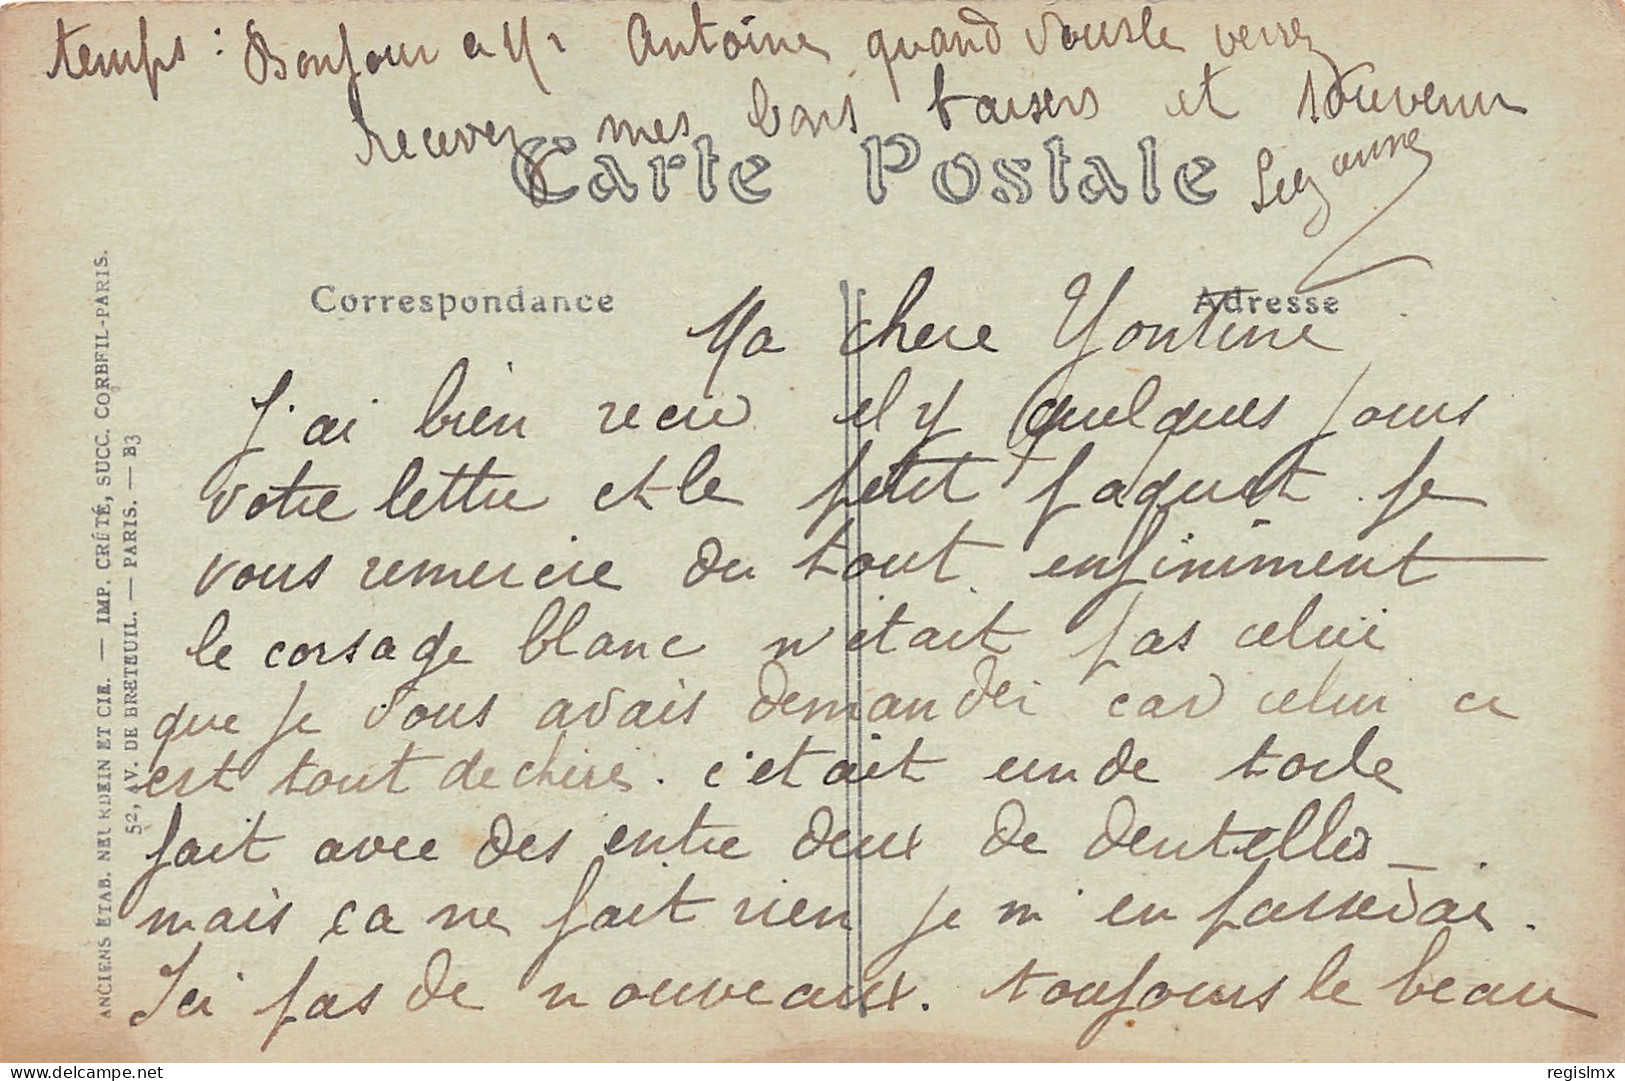 temps : Bonjour a Mr Antoine quand vous le verrez
recever mes bons baisers et souvenir
Suzanne
Carte Postale
Correspondance
Adresse
Ma chere Yontine
J'ai bien recu il y quelques jours
votre lettre et le petit paquet. je
vous remercie du tout infiniment
le corsage blanc n'était pas celui
que je vous avais demander car celui ci
est tout dechiré. c'etait un de toile
fait avec des entre deux de dentelles _ .
mais ça ne fait rien je m'en passerai.
Ici pas de nouveaux. toujours le beau
ANCIENS ÉTAB. NEURDEIN ET CIE. — IMP. CRÉTÉ, SUCC. CORBEIL-PARIS.
52, AV. DE BRETEUIL. — PARIS. — B3
delcampe.net
regislmx